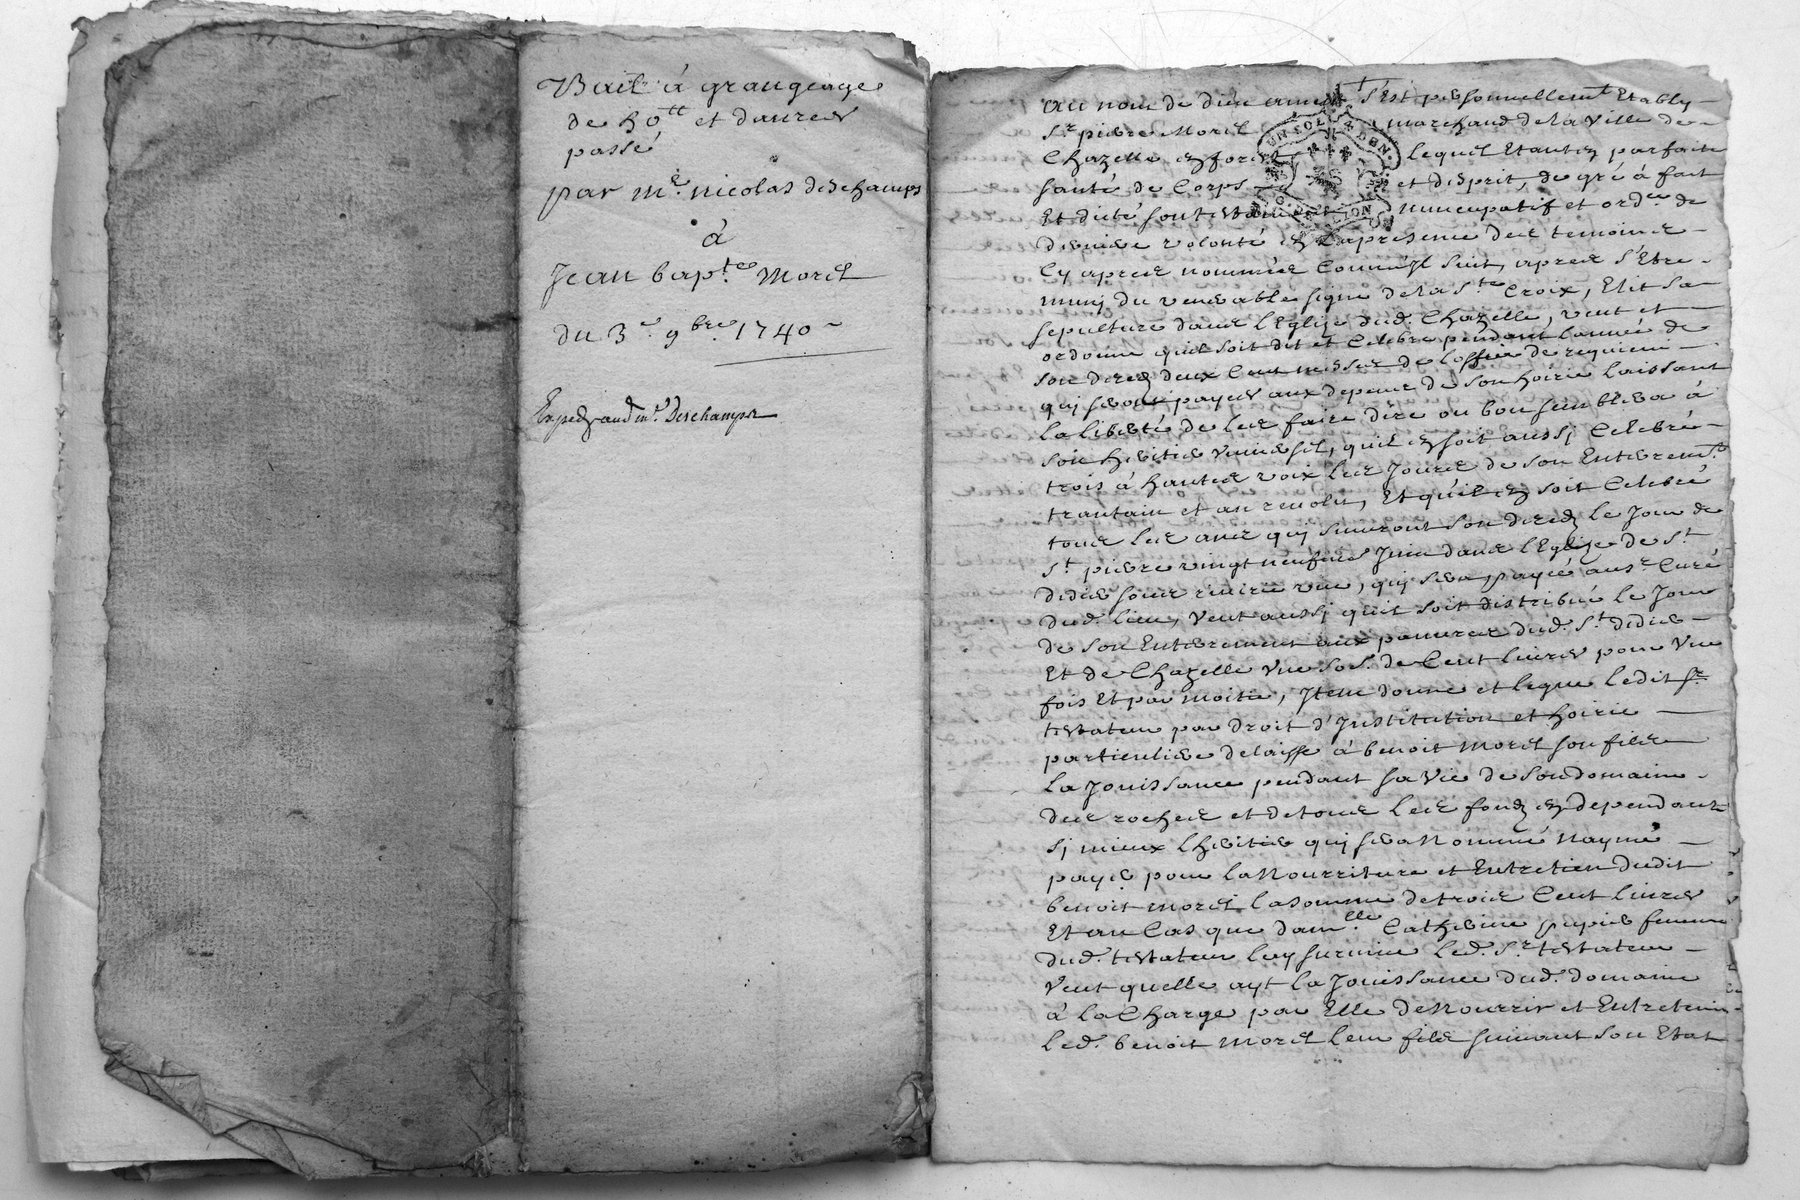 Bail à grangeage
de 50^tt et danrees
passé
par m^e. nicolas deschamps
à
Jean bap^te. Morel
du 3^e 9^bre. 1740
Exped aud m^e. Deschamps
Au nom de dieu amen s'est personnellem^t Etably
S^r. pierre Morel marchand de la ville de
Chazelle en forest lequel Etant en parfaite
santé de Corps et desprit, de gré à fait
Et dicté son testament nuncupatif et ord^ce de
derniere volonté en la presence des temoins
Cy apres nommés Comme s'en suit, apres s'Etre
muny du venerable signe de la S^te Croix, Elit sa
sepulture dans l'Eglise dud. Chazelle, veut et
ordonne quil soit dit et Celebré pendant l'année de
son deced deux Cent messes de l'office de requiem
qui seront payées aux depens de son hoirie laissant
la liberté de les faire dire ou bon semblera à
son heritier universel, quil en soit aussi Celebré
trois à hautes voix les Jours de son Enterrem^t.
trantain et an revolu, Et quil en soit Celebré
tous les ans qui suivront son deced le Jour de
S^t. pierre vingt neufieme Juin dans l'Eglise de S^t
didier sous riverie une, qui sera payée au s^r Curé
dud. lieu, veut aussi quil soit distribué le Jour
de son Enterrement aux pauvres dud. S^t. didier
Et de Chazelle une som^e. de Cent livres pour une
fois Et par moitié, Item donne et legue ledit S^r.
testateur par droit d'Institution et hoirie
particuliere delaisse à benoit Morel son fils
la Jouissance pendant sa vie de son domaine
des roches et de tous les fonds en dependants
si mieux l'heritier qui sera Nommé n'ayme
payer pour la Nourriture et Entretien dudit
benoit morel la somme de trois Cent livres
Et au Cas que dam^lle. Catherine pupier femme
dud. testateur luy survive led. S^r. testateur
veut quelle ayt la Jouissance dud. domaine
à la Charge par Elle de Nourrir et Entretenir
led. benoit Morel leur fils suivant son Etat